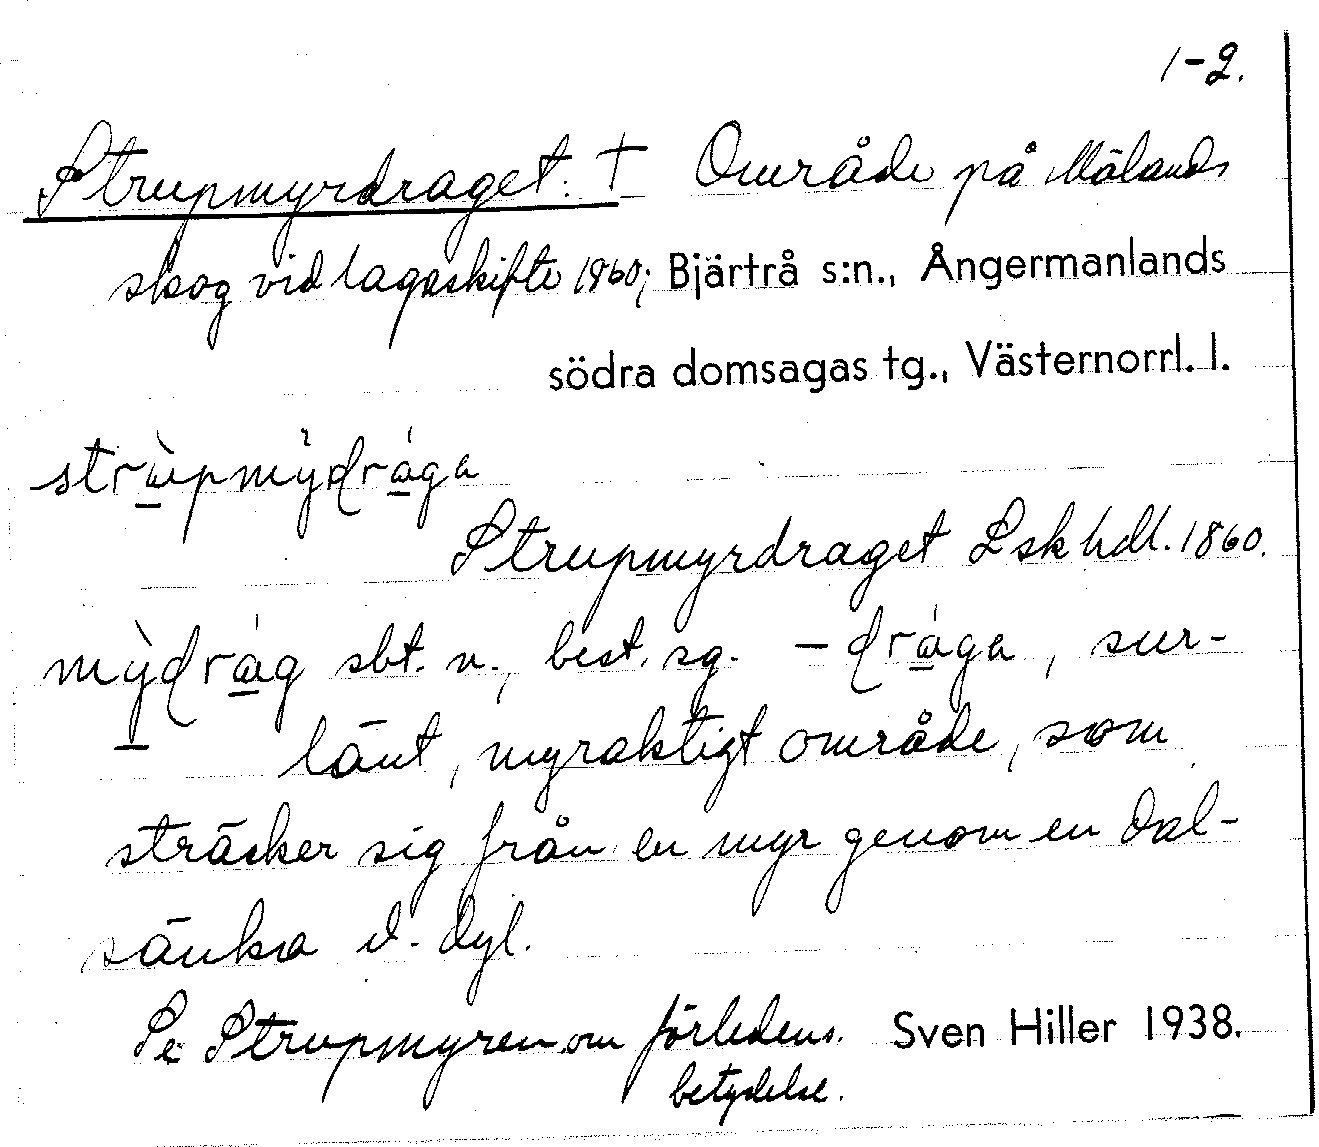 1-2.
Strupmyrdraget. † Område på Mälands
skog vid lagaskifte 1860; Bjärtrå s:n., Ångermanlands
södra domsagas tg., Västernorrl. l.
Strupmyrdraget Lskhdl. 1860.
sbt. n., best. sg. sur-
länt, myraktigt område, som
sträcker sig från en myr genom en dal-
sänka e. dyl.
Se Strupmyren om förledens. Sven Hiller 1938.
betydelse.